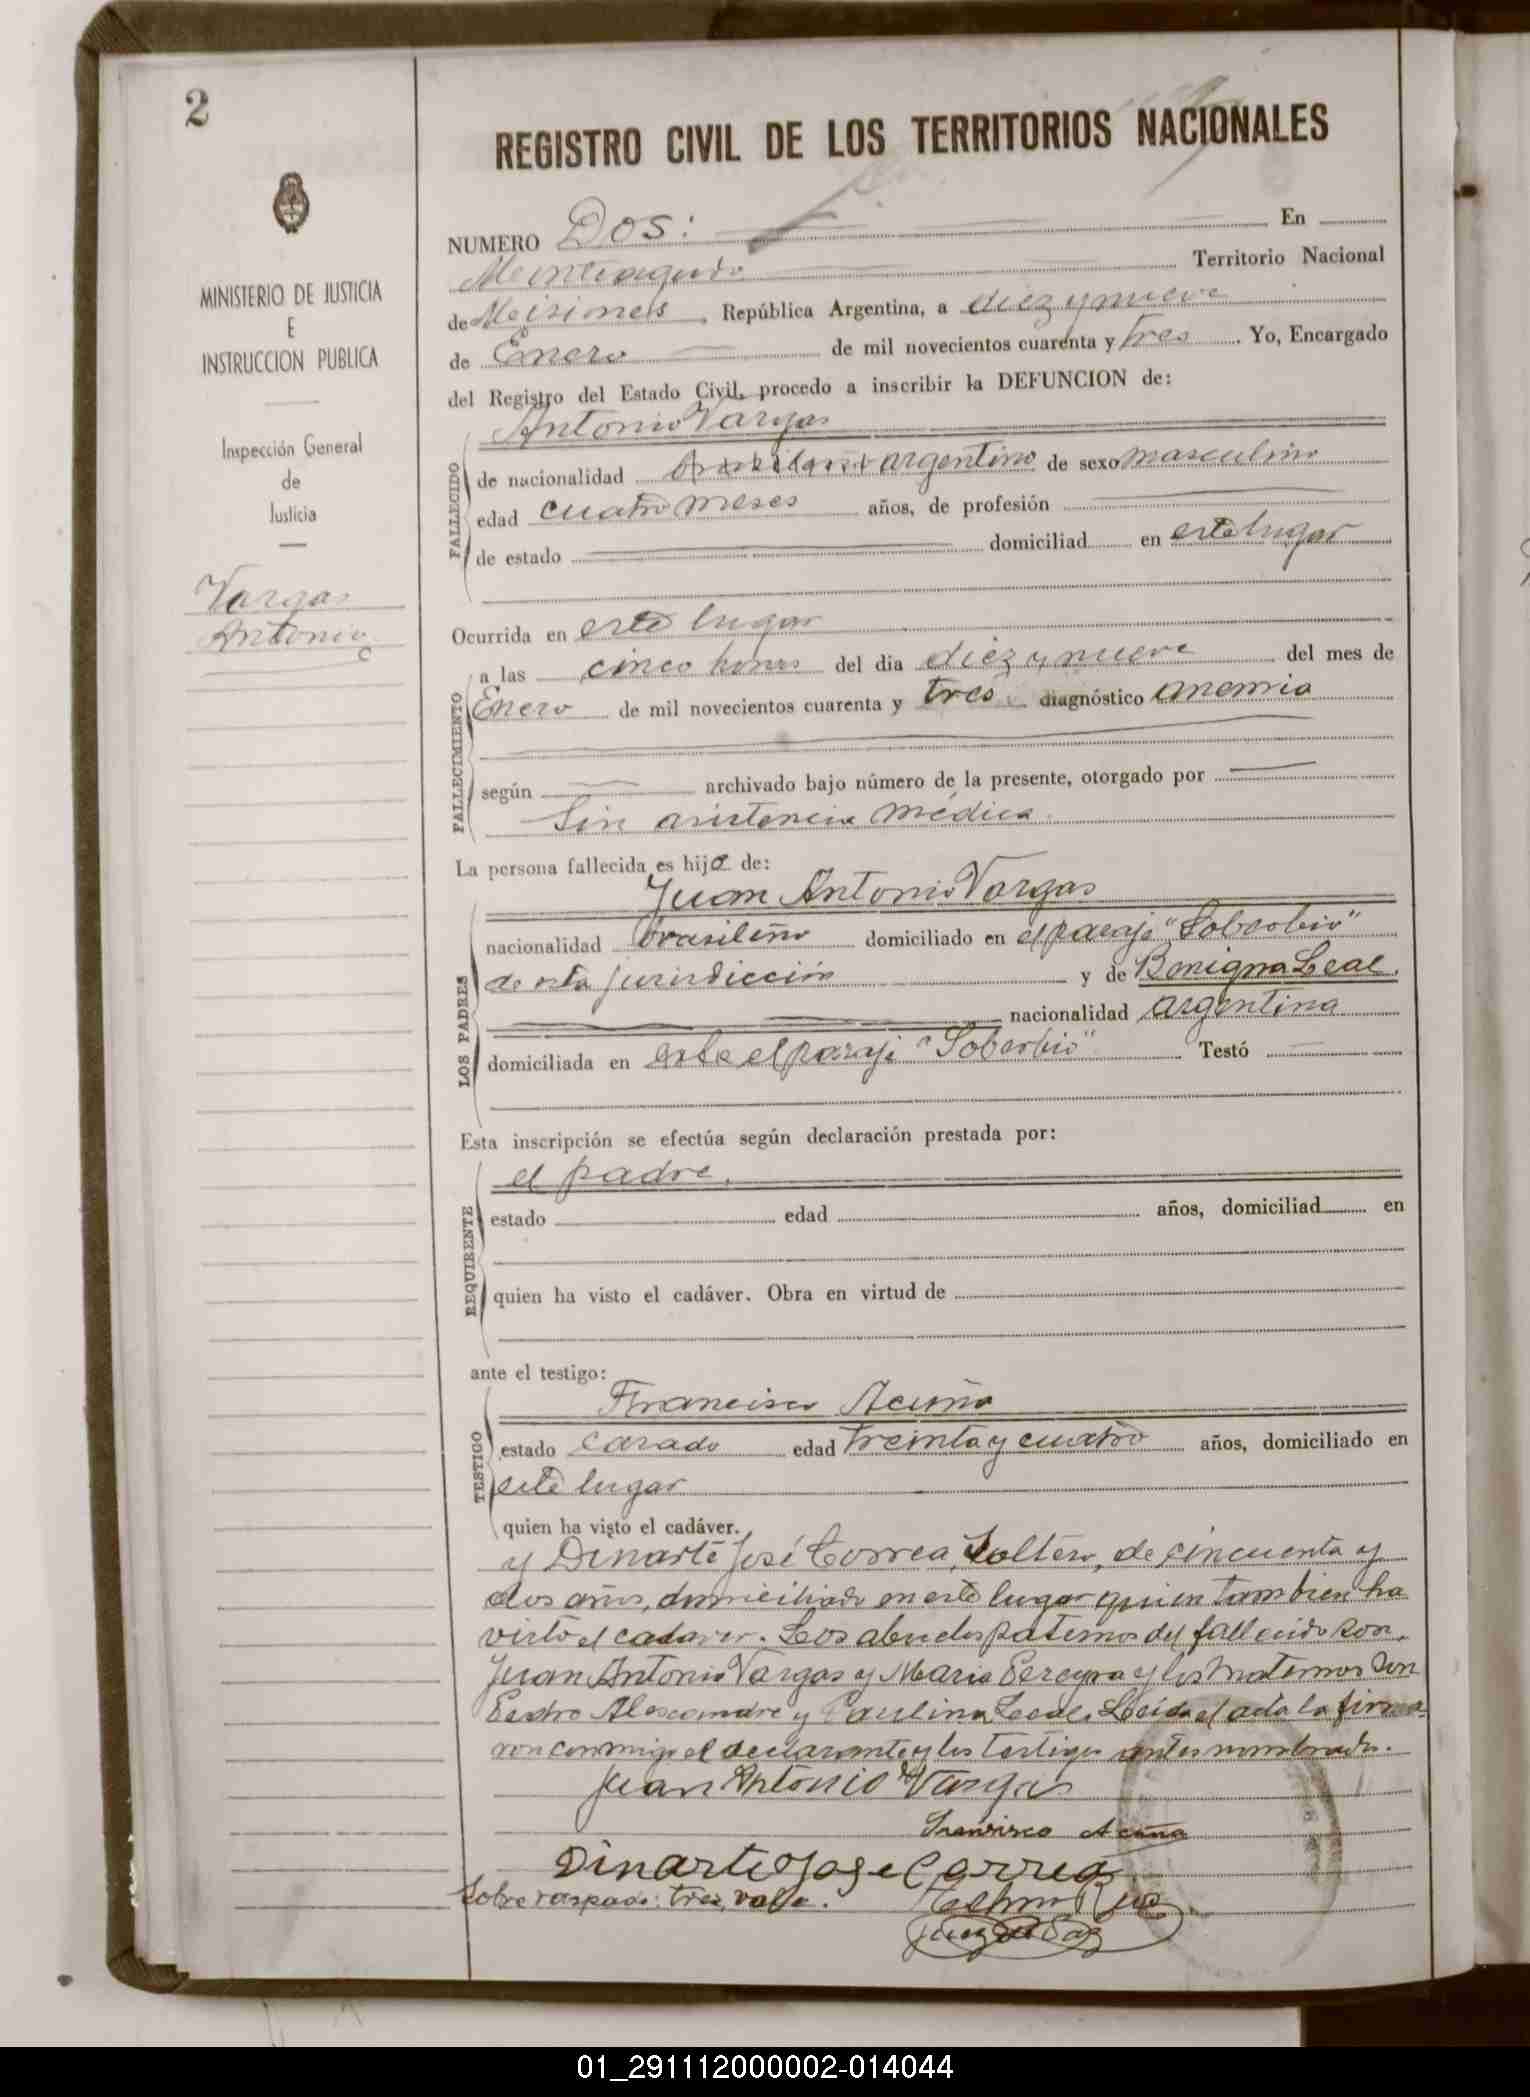 2
REGISTRO CIVIL DE LOS TERRITORIOS NACIONALES
MINISTERIO DE JUSTICIA
E
INSTRUCCION PUBLICA
Inspección General
de
Justicia
Vargas
Antonio
NUMERO Dos: En
Monteagudo Territorio Nacional
de Misiones, República Argentina, a diez y nueve
de Enero de mil novecientos cuarenta y tres. Yo, Encargado
del Registro del Estado Civil, procedo a inscribir la DEFUNCION de:
Antonio Vargas
FALLECIDO
de nacionalidad argentino de sexo masculino
edad cuatro meses años, de profesión
de estado domiciliad en este lugar
Ocurrida en este lugar
FALLECIMIENTO
a las cinco horas del dia diez y nueve del mes de
Enero de mil novecientos cuarenta y tres diagnóstico anemia
según archivado bajo número de la presente, otorgado por
Sin asistencia médica.
La persona fallecida es hijo de:
Juan Antonio Vargas
LOS PADRES
nacionalidad brasileño domiciliado en el paraje "Soberbio"
de esta jurisdicción y de Benigna Leal.
nacionalidad argentina
domiciliada en el paraje "Soberbio" Testó
Esta inscripción se efectúa según declaración prestada por:
el padre.
REQUIRENTE
estado edad años, domiciliad en
quien ha visto el cadáver. Obra en virtud de
ante el testigo:
Francisco Acuña
TESTIGO
estado casado edad treinta y cuatro años, domiciliado en
este lugar
quien ha visto el cadáver.
y Dinarte José Correa, Soltero, de cincuenta y
dos años, domiciliado en este lugar quien tambien ha
visto el cadaver. Los abuelos paternos del fallecido son,
Juan Antonio Vargas y Maria Pereyra y los maternos son
Pedro Alescandre y Paulina Leal. Leída el acta la firma-
ron conmigo el declarante y los testigos antes nombrados.
Juan Antonio Vargas
Francisco Acuña
Dinarte Jose Correa
Sobre raspado: tres, vale.
Juez de Paz
01_291112000002-014044